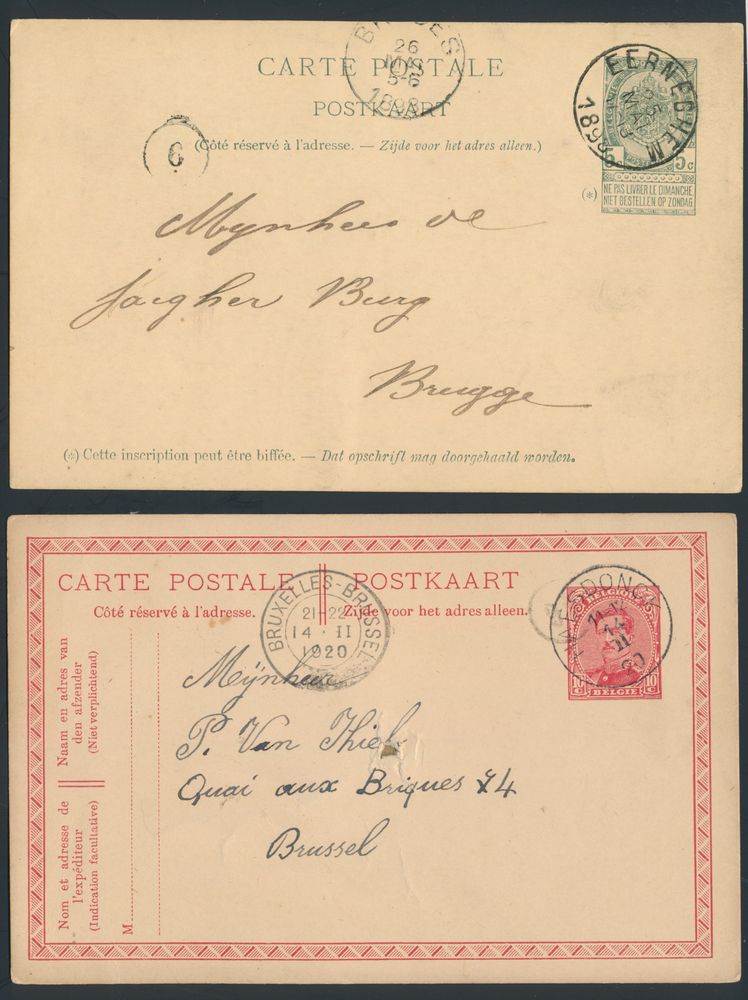 CARTE POSTALE
POSTKAART
(Côté réservé à l'adresse. — Zijde voor het adres alleen.)
26
5-6
1898
EERNEGHEM
25
1898
6
5 C
(*) NE PAS LIVRER LE DIMANCHE
NIET BESTELLEN OP ZONDAG
Mynheer de
Jaegher Burg
Brugge
(*) Cette inscription peut être biffée. — Dat opschrift mag doorgehaald worden.
CARTE POSTALE POSTKAART
Côté réservé à l'adresse. Zijde voor het adres alleen.
BRUXELLES-BRUSSEL
21-22
14 · II
1920
14
II
20
BELGIQUE
10 C 10 C
BELGIË
Naam en adres van
den afzender
(Niet verplichtend)
Nom et adresse de
l'expéditeur
(Indication facultative)
M
Mÿnheer
P. Van Thiel
Quai aux Briques 74
Brussel